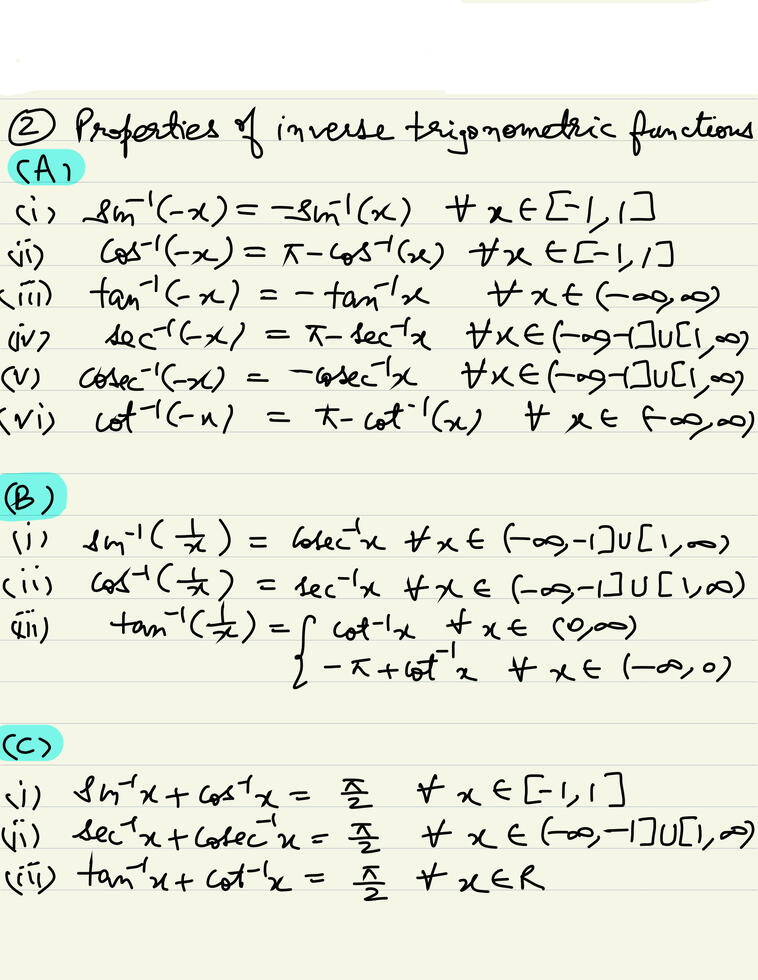 ② Properties of inverse trigonometric functions
(A)
(i) sin⁻¹(-x) = -sin⁻¹(x) ∀ x ∈ [-1, 1]
(ii) cos⁻¹(-x) = π - cos⁻¹(x) ∀ x ∈ [-1, 1]
(iii) tan⁻¹(-x) = - tan⁻¹x ∀ x ∈ (-∞, ∞)
(iv) sec⁻¹(-x) = π - sec⁻¹x ∀ x ∈ (-∞, -1] ∪ [1, ∞)
(v) cosec⁻¹(-x) = -cosec⁻¹x ∀ x ∈ (-∞, -1] ∪ [1, ∞)
(vi) cot⁻¹(-x) = π - cot⁻¹(x) ∀ x ∈ (-∞, ∞)
(B)
(i) sin⁻¹(1/x) = cosec⁻¹x ∀ x ∈ (-∞, -1] ∪ [1, ∞)
(ii) cos⁻¹(1/x) = sec⁻¹x ∀ x ∈ (-∞, -1] ∪ [1, ∞)
(iii) tan⁻¹(1/x) = { cot⁻¹x ∀ x ∈ (0, ∞)
-π + cot⁻¹x ∀ x ∈ (-∞, 0)
(C)
(i) sin⁻¹x + cos⁻¹x = π/2 ∀ x ∈ [-1, 1]
(ii) sec⁻¹x + cosec⁻¹x = π/2 ∀ x ∈ (-∞, -1] ∪ [1, ∞)
(iii) tan⁻¹x + cot⁻¹x = π/2 ∀ x ∈ R